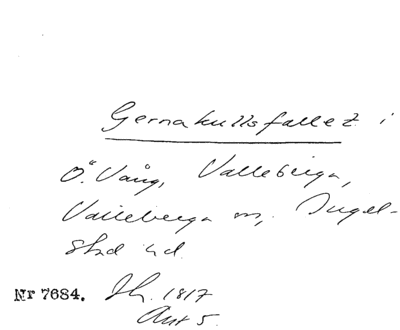 Gernakullsfallet i
Ö. Vång, Valleberga,
Valleberga sn, Ingel-
stad hd.
Nr 7684. Sk. 1817
Akt 5.